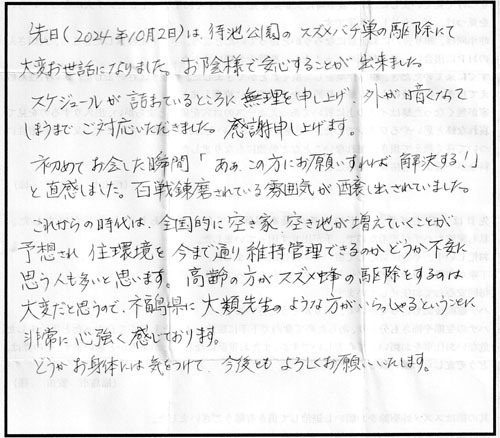 先日(2024年10月2日)は、待池公園のスズメバチ巣の駆除にて
大変お世話になりました。お陰様で安心することが出来ました。
スケジュールが詰まっているところに無理を申し上げ、外が暗くなって
しまうまでご対応いただきました。感謝申し上げます。
初めてお会した瞬間「ああ、この方にお願いすれば解決する!」
と直感しました。百戦錬磨されている雰囲気が醸し出されていました。
これからの時代は、全国的に空き家、空き地が増えていくことが
予想され住環境を今まで通り維持管理できるのかどうか不安に
思う人も多いと思います。高齢の方がスズメ蜂の駆除をするのは
大変だと思うので、福島県に大類先生のような方がいらっしゃるということに、
非常に心強く感じております。
どうかお身体には気をつけて、今後ともよろしくお願いいたします。